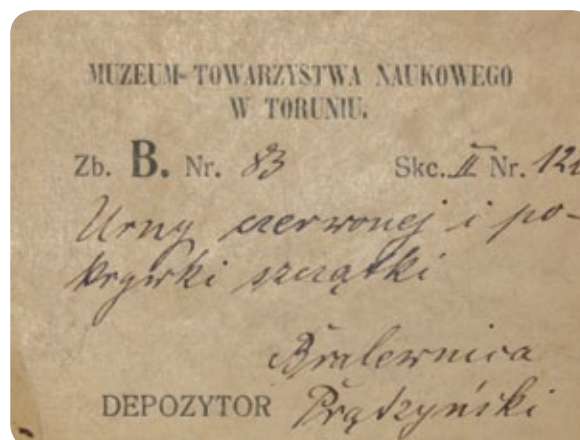 MUZEUM TOWARZYSTWA NAUKOWEGO
W TORUNIU.
Zb. B. Nr. 83 Skc. II Nr. 12
Urny czerwonej i po-
krywki szczątki
Bralewnica
DEPOZYTOR Prądzyński